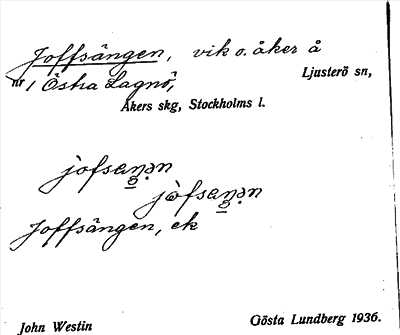 Joffsängen, vik o. åker å
nr 1 Östra Lagnö, Ljusterö sn,
Åkers skg, Stockholms l.
Joffsängen, ek
John Westin Gösta Lundberg 1936.